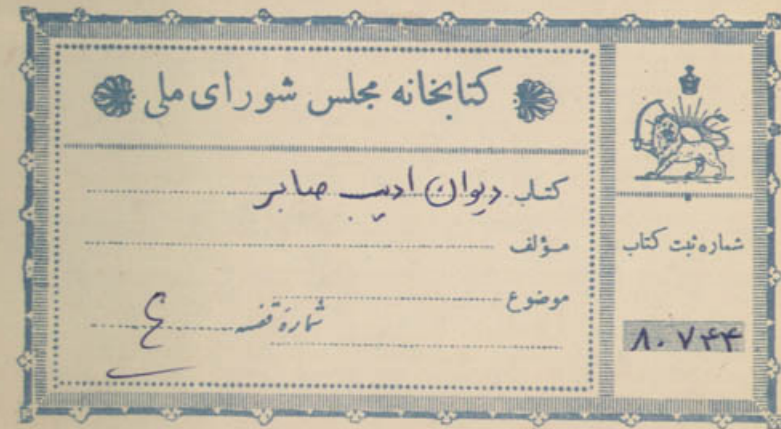 کتابخانه مجلس شورای ملی
کتاب دیوان ادیب صابر
مؤلف
موضوع
شمارهٔ قفسه
شماره ثبت کتاب
۸۰۷۴۴